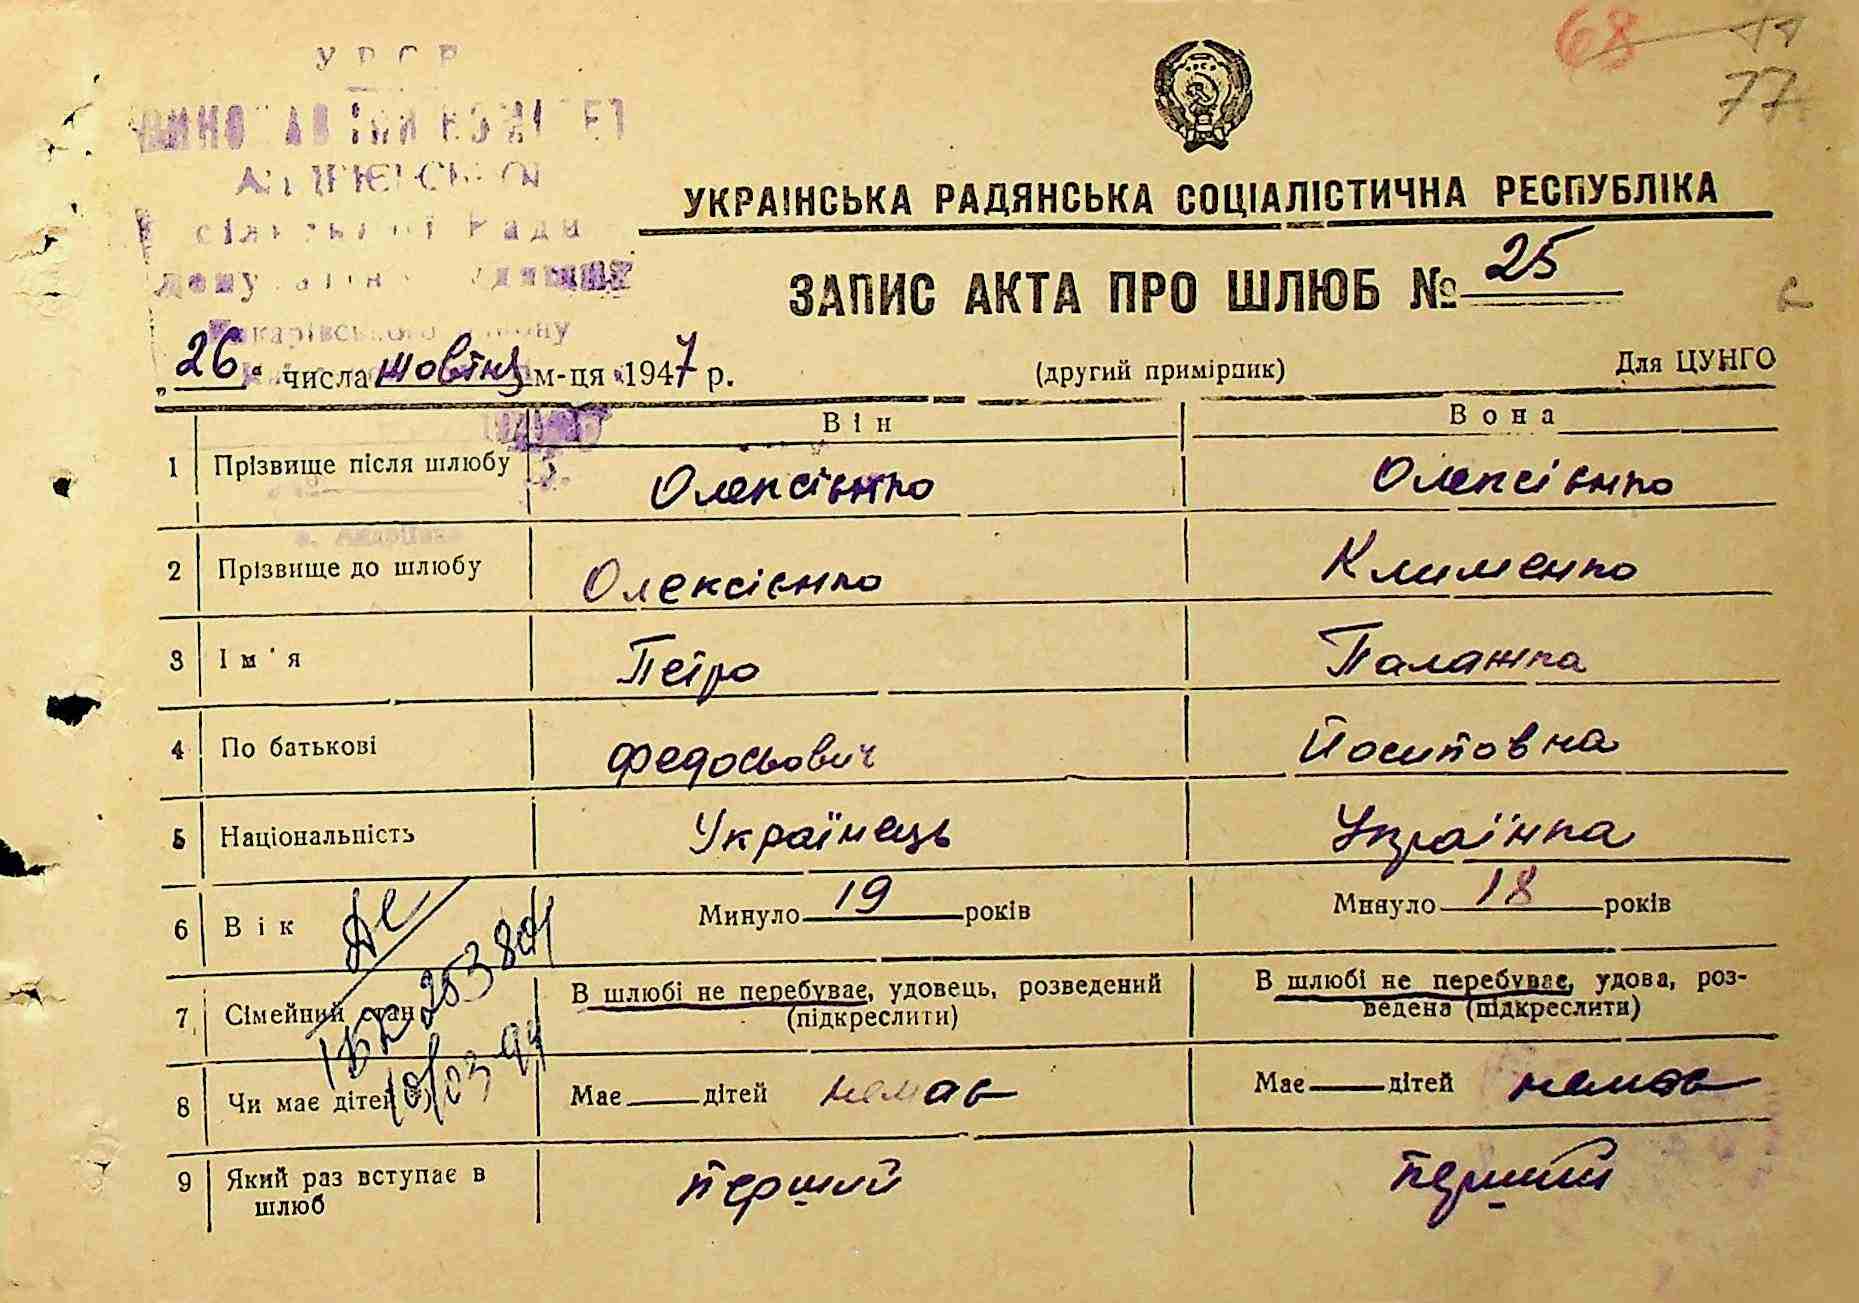 УРСР
сільської Ради
68 11
77
УКРАЇНСЬКА РАДЯНСЬКА СОЦІАЛІСТИЧНА РЕСПУБЛІКА
ЗАПИС АКТА ПРО ШЛЮБ № 25
"26" числа жовтня м-ця 1947 р.
(другий примірник)
Для ЦУНГО
Він Вона
1 Прізвище після шлюбу Олексієнко Олексієнко
2 Прізвище до шлюбу Олексієнко Клименко
3 Ім'я Петро Палажка
4 По батькові Федосьович Йосиповна
5 Національність Українець Українка
6 Вік Минуло 19 років Минуло 18 років
7 Сімейний стан В шлюбі не перебуває, удовець, розведений (підкреслити) В шлюбі не перебуває, удова, роз-
ведена (підкреслити)
8 Чи має дітей Має дітей немає Має дітей немає
9 Який раз вступає в
шлюб перший перший